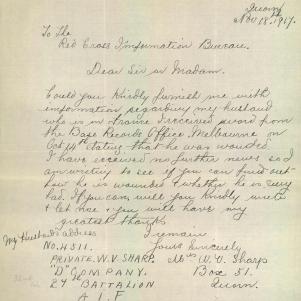 Quorn
Nov 18th 1917.
To The
Red Cross Information Bureau.
Dear Sir or Madam.
Could you kindly furnish me with
information regarding my husband
who is in France I received word from
the Base Records Office Melbourne on
Oct 19th stating that he was wounded
I have received no further news so I
am writing to see if you can find out
how he is wounded & whether he is very
bad. If you can, will you kindly write
& let me & you will have my
greatest thanks
I remain
My Husbands address
Yours Sincerely
No. 4311.
Mrs W. V. Sharp
PRIVATE. W.V. SHARP.
Box 51.
"D" COMPANY.
Quorn.
27th BATTALION
A.I.F